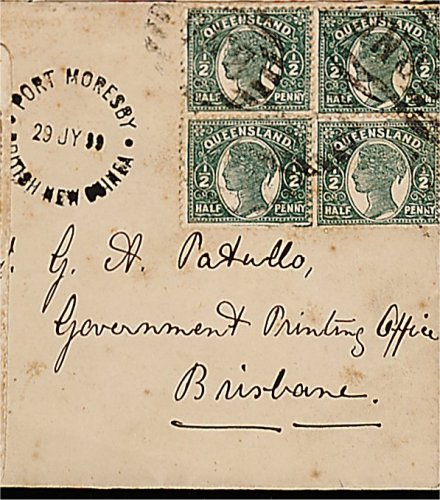 PORT MORESBY
29 JY 99
BRITISH NEW GUINEA
QUEENSLAND
½ ½
HALF PENNY
QUEENSLAND
½ ½
HALF PENNY
QUEENSLAND
½ ½
HALF PENNY
QUEENSLAND
½ ½
HALF PENNY
G. A. Patullo,
Government Printing Office
Brisbane.